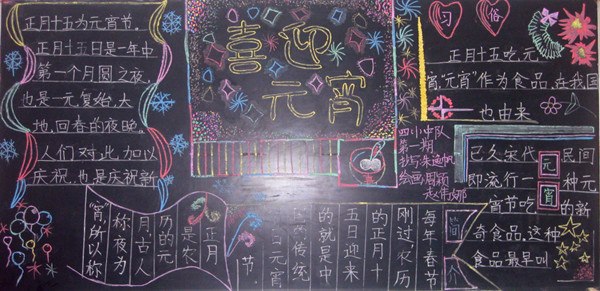 正月十五为元宵节,
正月十五日是一年中
第一个月圆之夜,
也是一元复始,大
地回春的夜晚,
人们对此加以
庆祝,也是庆祝新
喜迎
元宵
四小中队
第一期
抄写
绘画周颖
习俗
正月十五吃元
宵,元宵作为食品,在我国
也由来
已久宋代,民间
即流行一种元
宵节吃的新
奇食品。这种
食品最早叫
元宵
简介
每年春节
刚过农历
的正月十
五日迎来
的就是中
国的传统
节日元宵
节。
正月
是农
历的元
月,古人
称夜为
宵,所以称